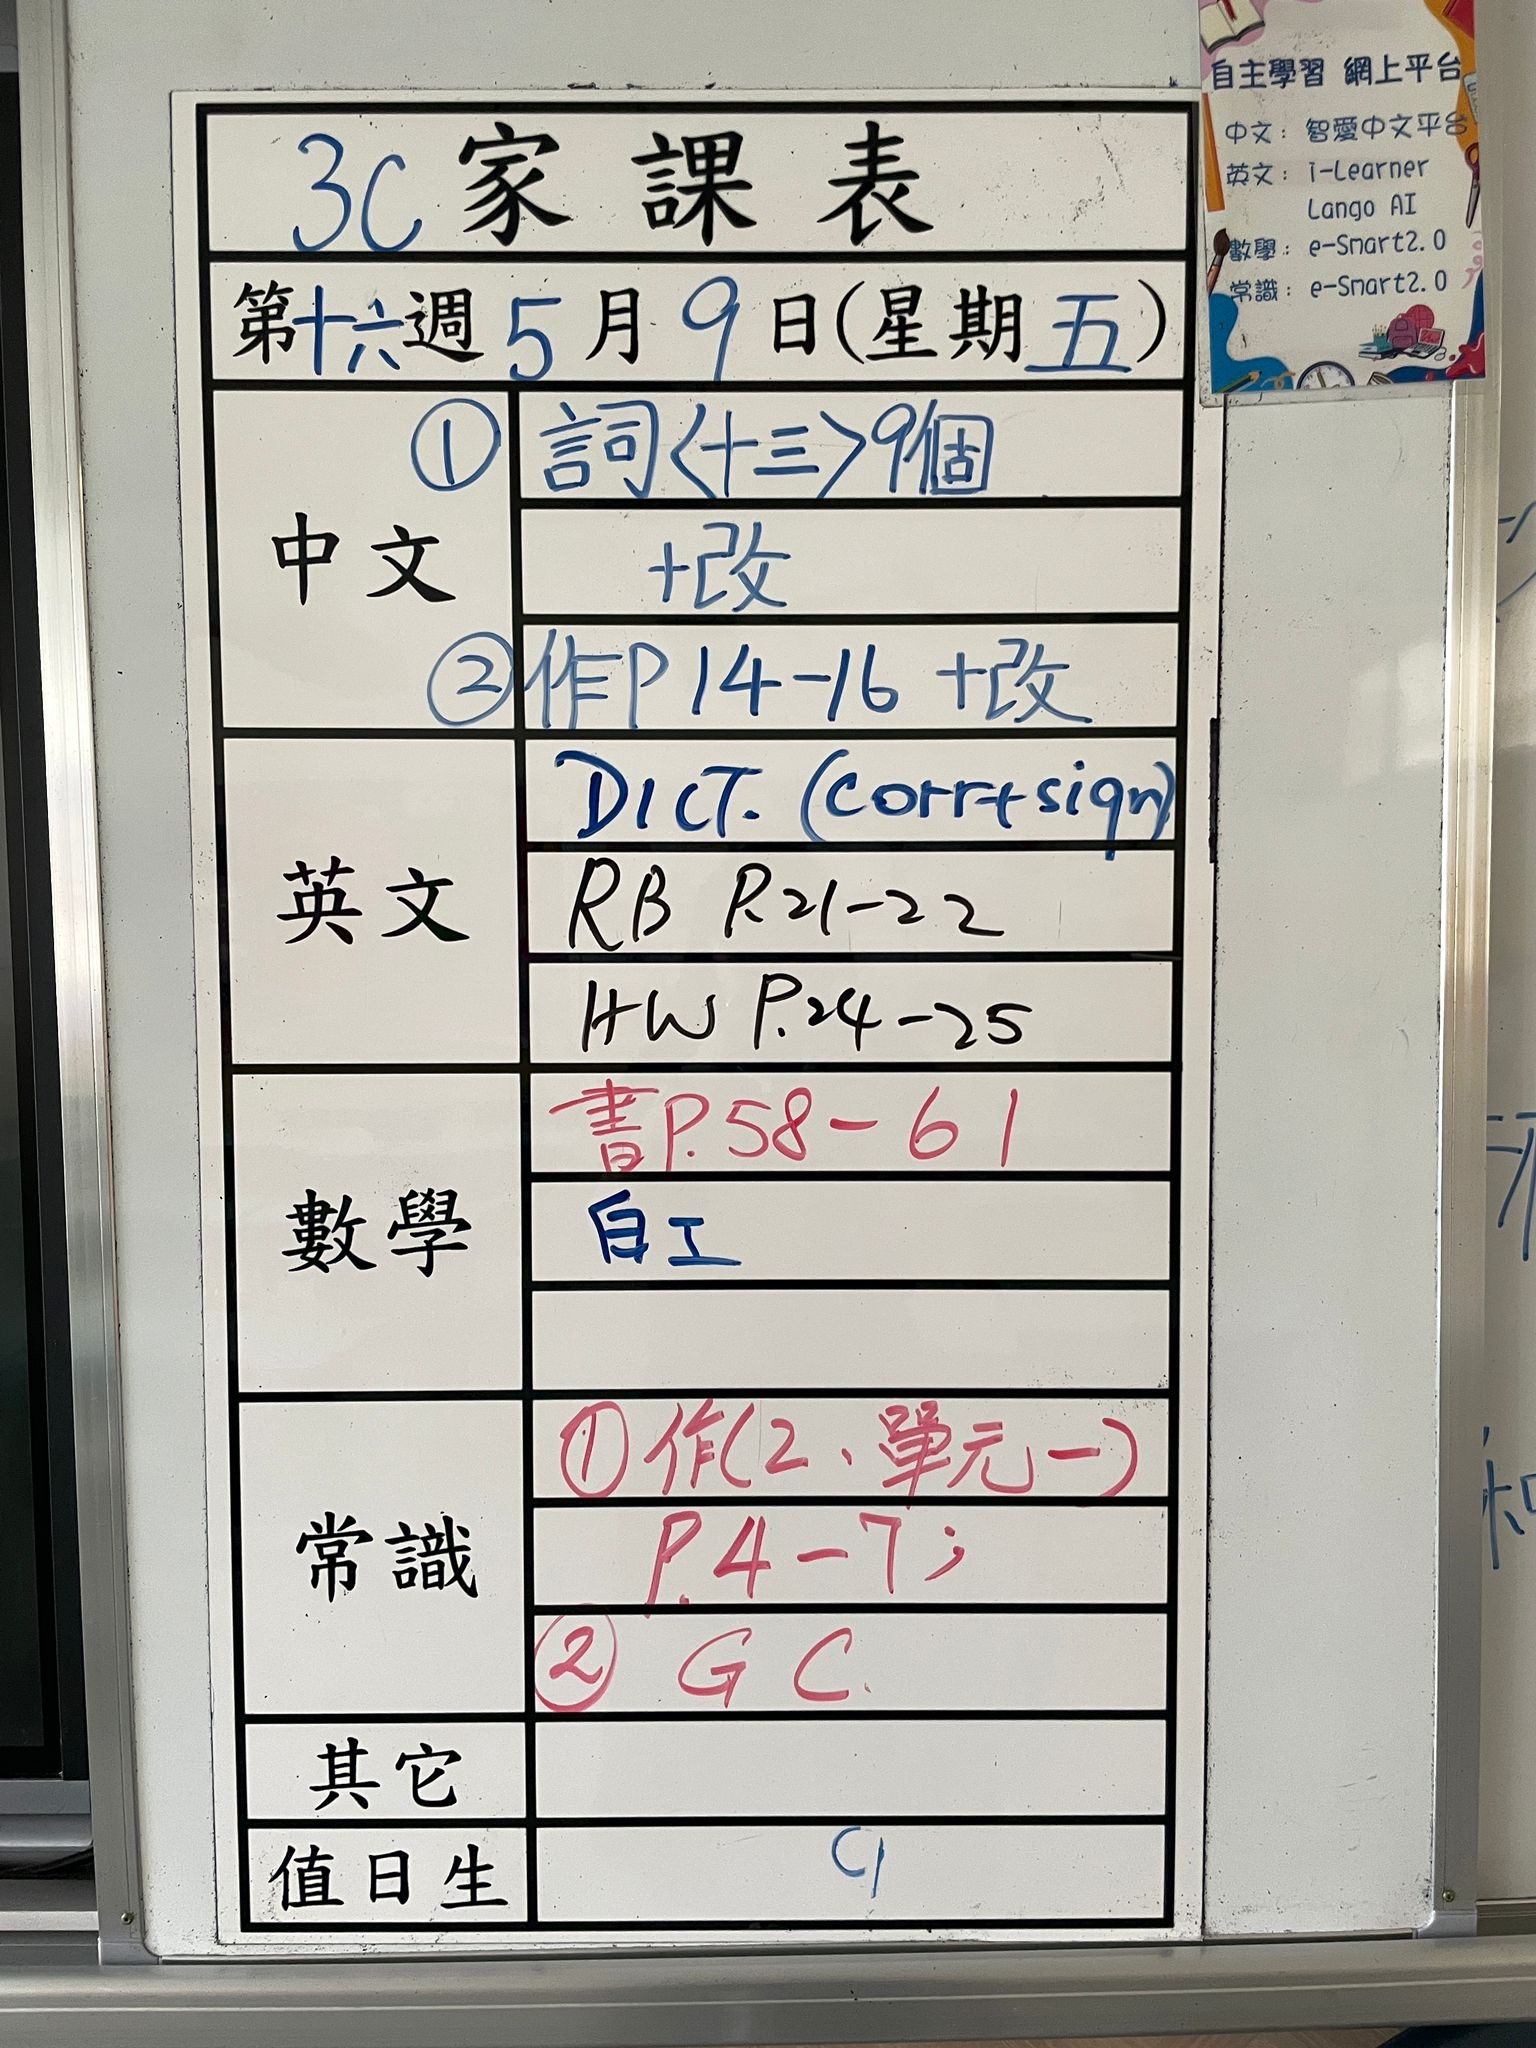 3C家課表
第十六週5月9日(星期五)
中文
① 詞〈十三〉9個
+改
② 作P14-16 +改
英文
DICT. (corr+sign)
RB P.21-22
HW P.24-25
數學
書P.58-61
自工
常識
①作(2、單元一)
P.4-7;
② GC
其它
值日生
9
自主學習 網上平台
中文: 智愛中文平台
英文: i-Learner
Lango AI
數學: e-Smart2.0
常識: e-Smart2.0